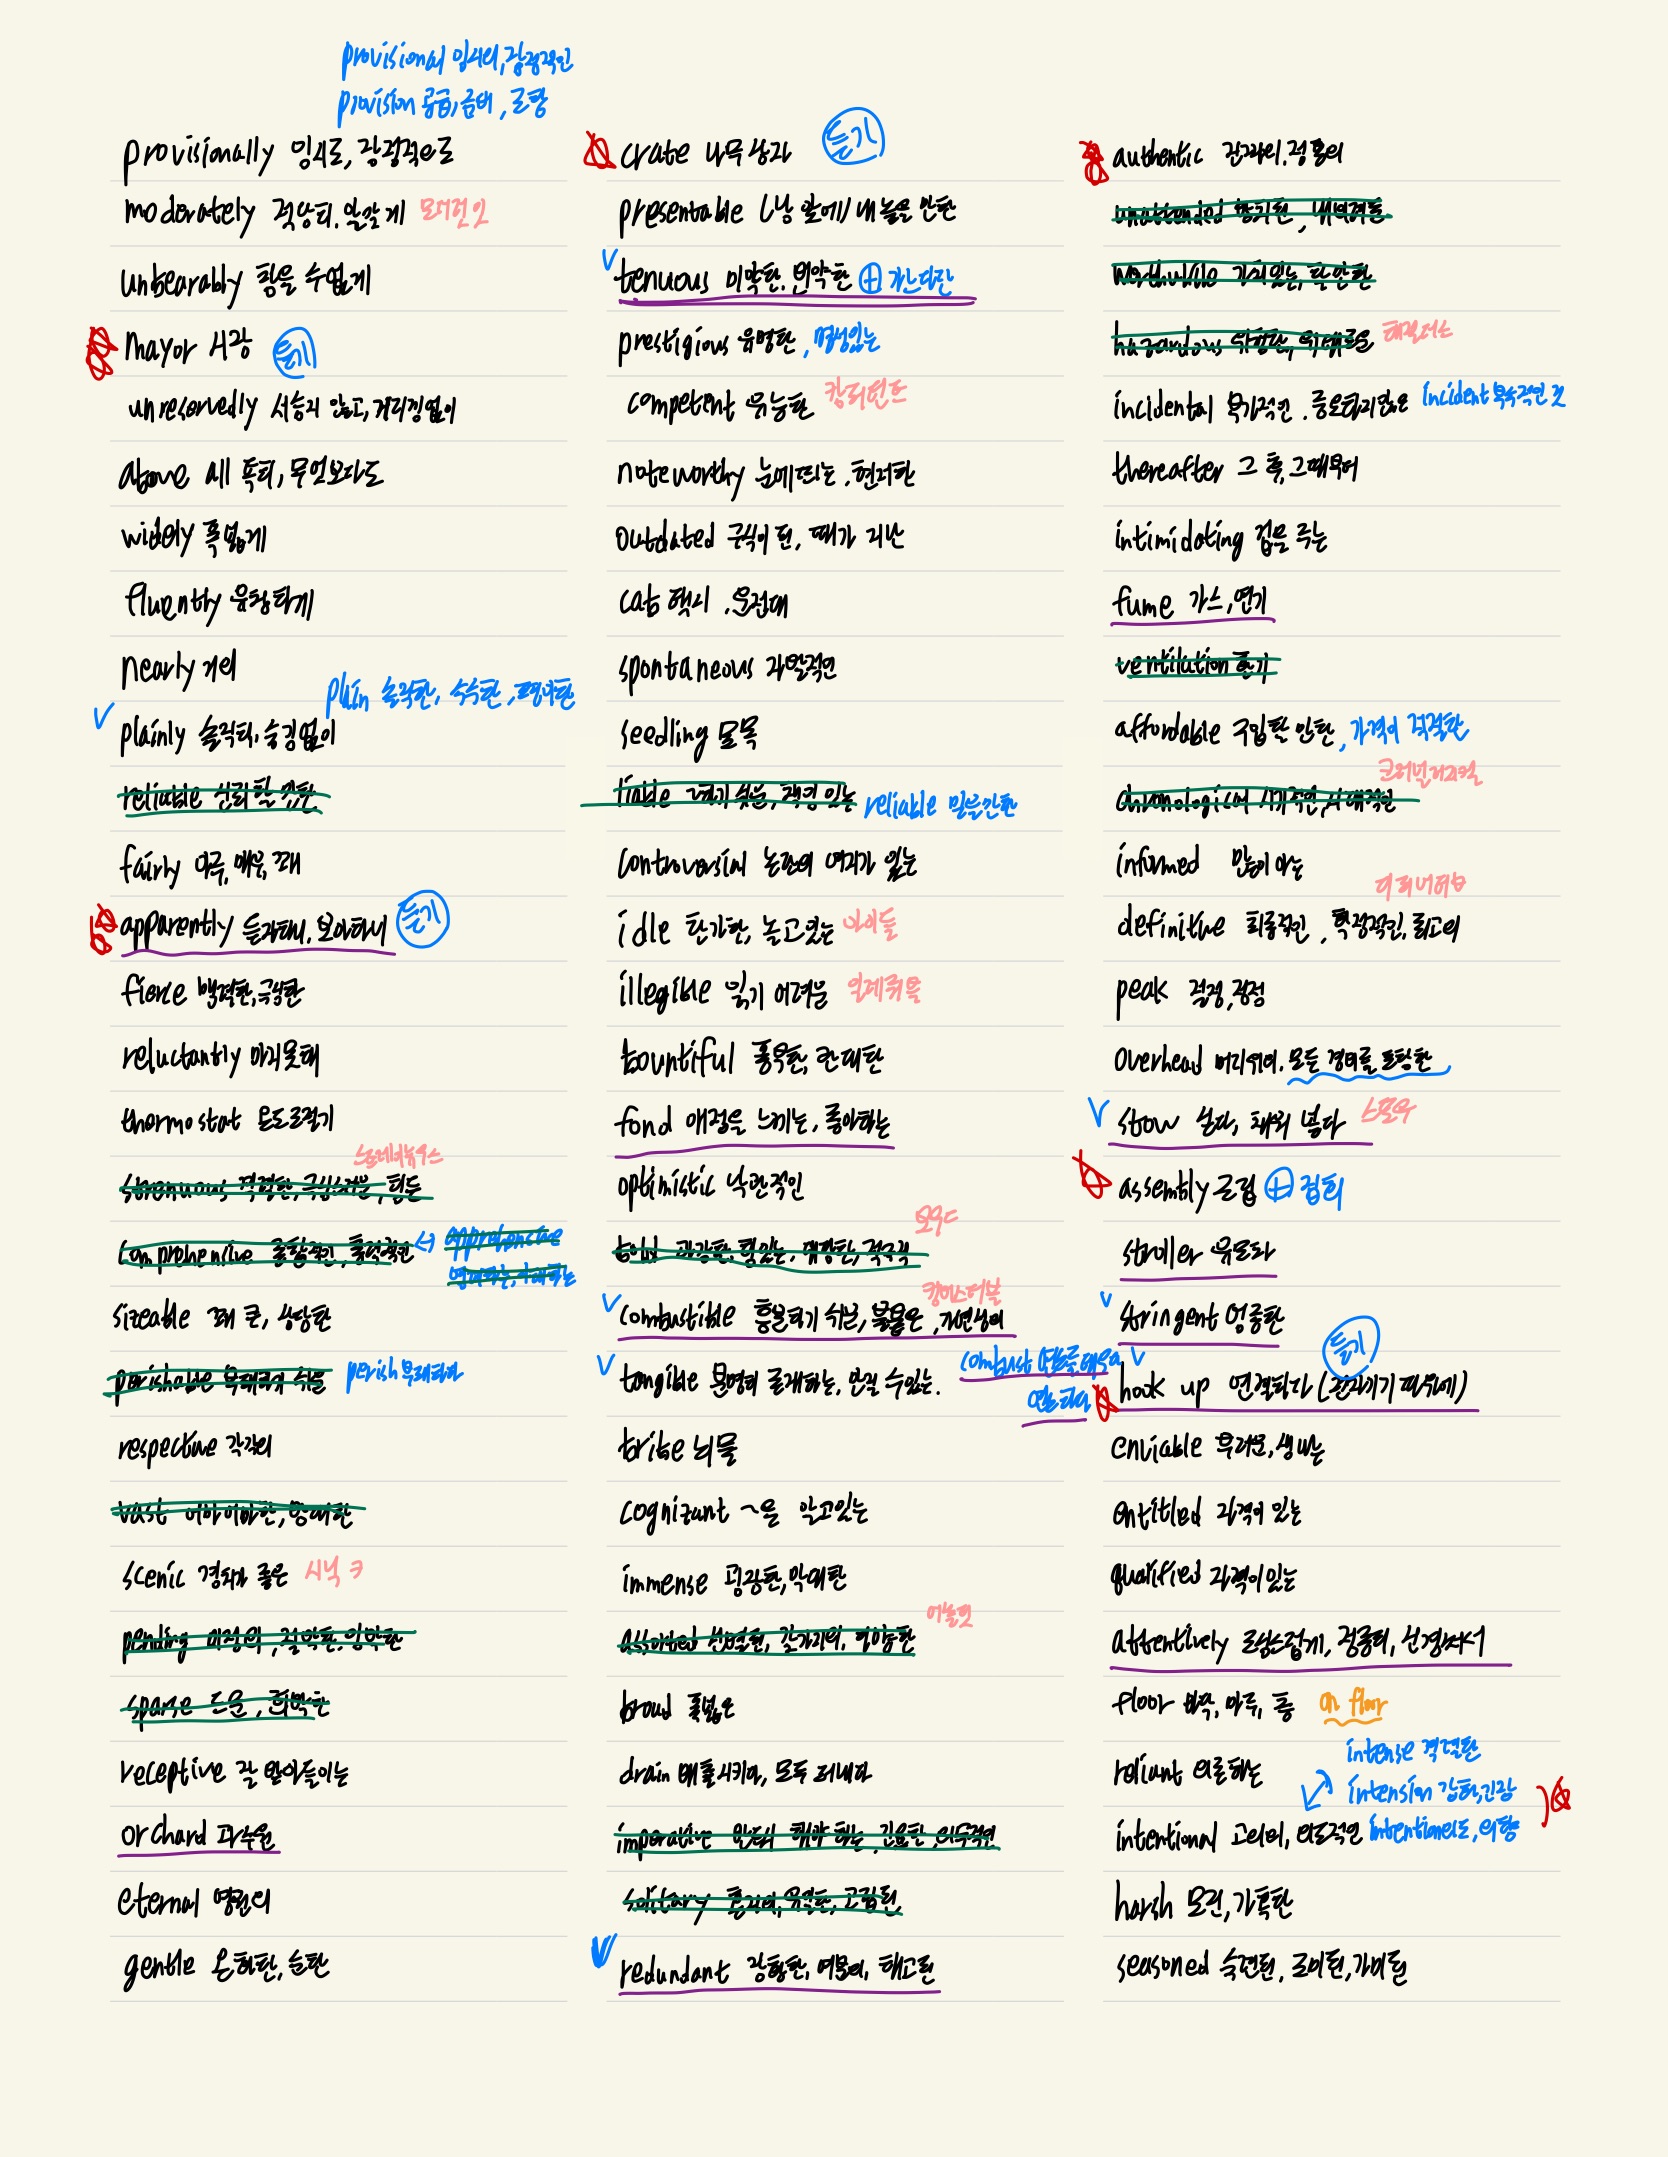 provisional 임시의, 잠정적인
provision 공급, 금대, 조항
provisionally 임시로, 잠정적으로
moderately 적당히, 알맞게 모더런잇
unbearably 힘을 수없게
mayor 시장 듣기
unreservedly 서슴지 않고, 거리낌없이
above all 특히, 무엇보다도
widely 폭넓게
fluently 유창하게
nearly 거의
plain 솔직한, 수수한, 평이한
plainly 솔직히, 숨김없이
reliable 신뢰할만한
fairly 아주, 매우, 꽤
apparently 듣자하니, 보아하니 듣기
fierce 맹렬한, 극심한
reluctantly 마지못해
thermostat 온도조절기
스트레뉴우스
strenuous 격렬한, 극심스러운, 힘든
comprehensive 포괄적인, 종합적인 <-> apprehensive
염려하는, 이해하는
sizeable 꽤 큰, 상당한
perishable 부패하기 쉬운 perish 부패하다
respective 각각의
vast 어마어마한, 방대한
scenic 경치가 좋은 시닉 ㅋ
pending 미정의, 절박한, 임박한
sparse 드문, 희박한
receptive 잘 받아들이는
orchard 과수원
eternal 영원의
gentle 온화한, 순한
crate 나무상자 듣기
presentable (남 앞에) 내놓을 만한
tenuous 미약한, 빈약한 + 간단한
prestigious 유명한, 명성있는
competent 유능한 캄피턴트
noteworthy 눈에띄는, 현저한
outdated 구식이 된, 때가 지난
cab 택시, 운전대
spontaneous 자발적인
seedling 묘목
liable 걸리기 쉬운, 책임 있는 reliable 믿을만한
controversial 논쟁의 여지가 있는
idle 한가한, 놀고있는 아이들
illegible 읽기 어려운 일레쥐블
bountiful 풍부한, 관대한
fond 애정을 느끼는, 좋아하는
optimistic 낙관적인
보우드
bold 과감한, 힘있는, 대담한, 적극적
컴버스터블
combustible 흥분되기 쉬운, 불붙은, 가연성의
tangible 분명히 존재하는, 만질 수있는. combust 연소를 태우다
연소하다
bribe 뇌물
cognizant ~을 알고있는
immense 굉장한, 막대한
어솔팃
assorted 선별된, 갖가지의, 다양한
broad 폭넓은
drain 배출시키다, 모두 써내다
imperative 반드시 해야 하는, 긴요한, 의무적인
solitary 혼자의, 유일한, 고립된
redundant 장황한, 여분의, 해고된
authentic 진짜의, 정통의
unattended 방치된, 내버려둔
worthwhile 가치있는, 할 만한
hazardous 위험한, 위해로운 해절더스
incidental 부가적인, 중요하지않은 incident 부수적인 것
thereafter 그 후, 그때부터
intimidating 겁을 주는
fume 가스, 연기
ventilation 환기
affordable 구입할 만한, 가격이 적절한
크러널러지컬
chronological 시기적인, 시대적인
informed 많이 아는
디퓌너티브
definitive 최종적인, 확정적인, 최고의
peak 절정, 정점
overhead 머리위의, 모든 경비를 포함한
stow 싣다, 채워 넣다 스똘우
assembly 조립 + 집회
stroller 유모차
stringent 엄중한
듣기
hook up 연결하다 (전자기기 따위에)
enviable 부러운, 샘나는
entitled 자격이 있는
qualified 자격이있는
attentively 조심스럽게, 정중히, 신경써서
floor 바닥, 마루, 층 on floor
intense 격렬한
reliant 의존하는
intension 강화, 긴장
intentional 고의의, 의도적인 intention 의도, 의향
harsh 모진, 가혹한
seasoned 숙련된, 조미된, 가미된